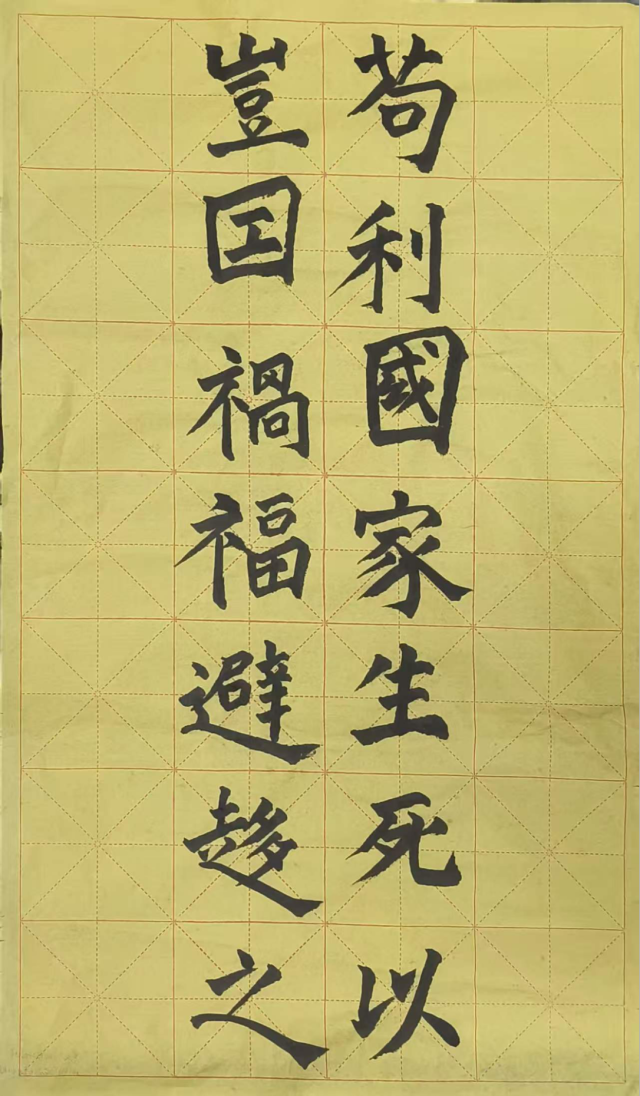 苟利國家生死以
豈囙禍福避趍之